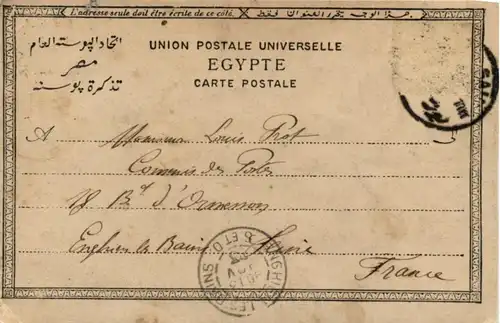 L'adresse seule doit être écrite de ce côté. هذا الوجه يتحرر العنوان فقط
اتحاد البوسته العام
مصر
تذكرة بوسته
UNION POSTALE UNIVERSELLE
EGYPTE
CARTE POSTALE
A Monsieur Louis Prot
Commis des Postes
18 Bd d'Ormesson
Enghien les Bains
France
ENGHIEN LES BAINS
S. ET O.